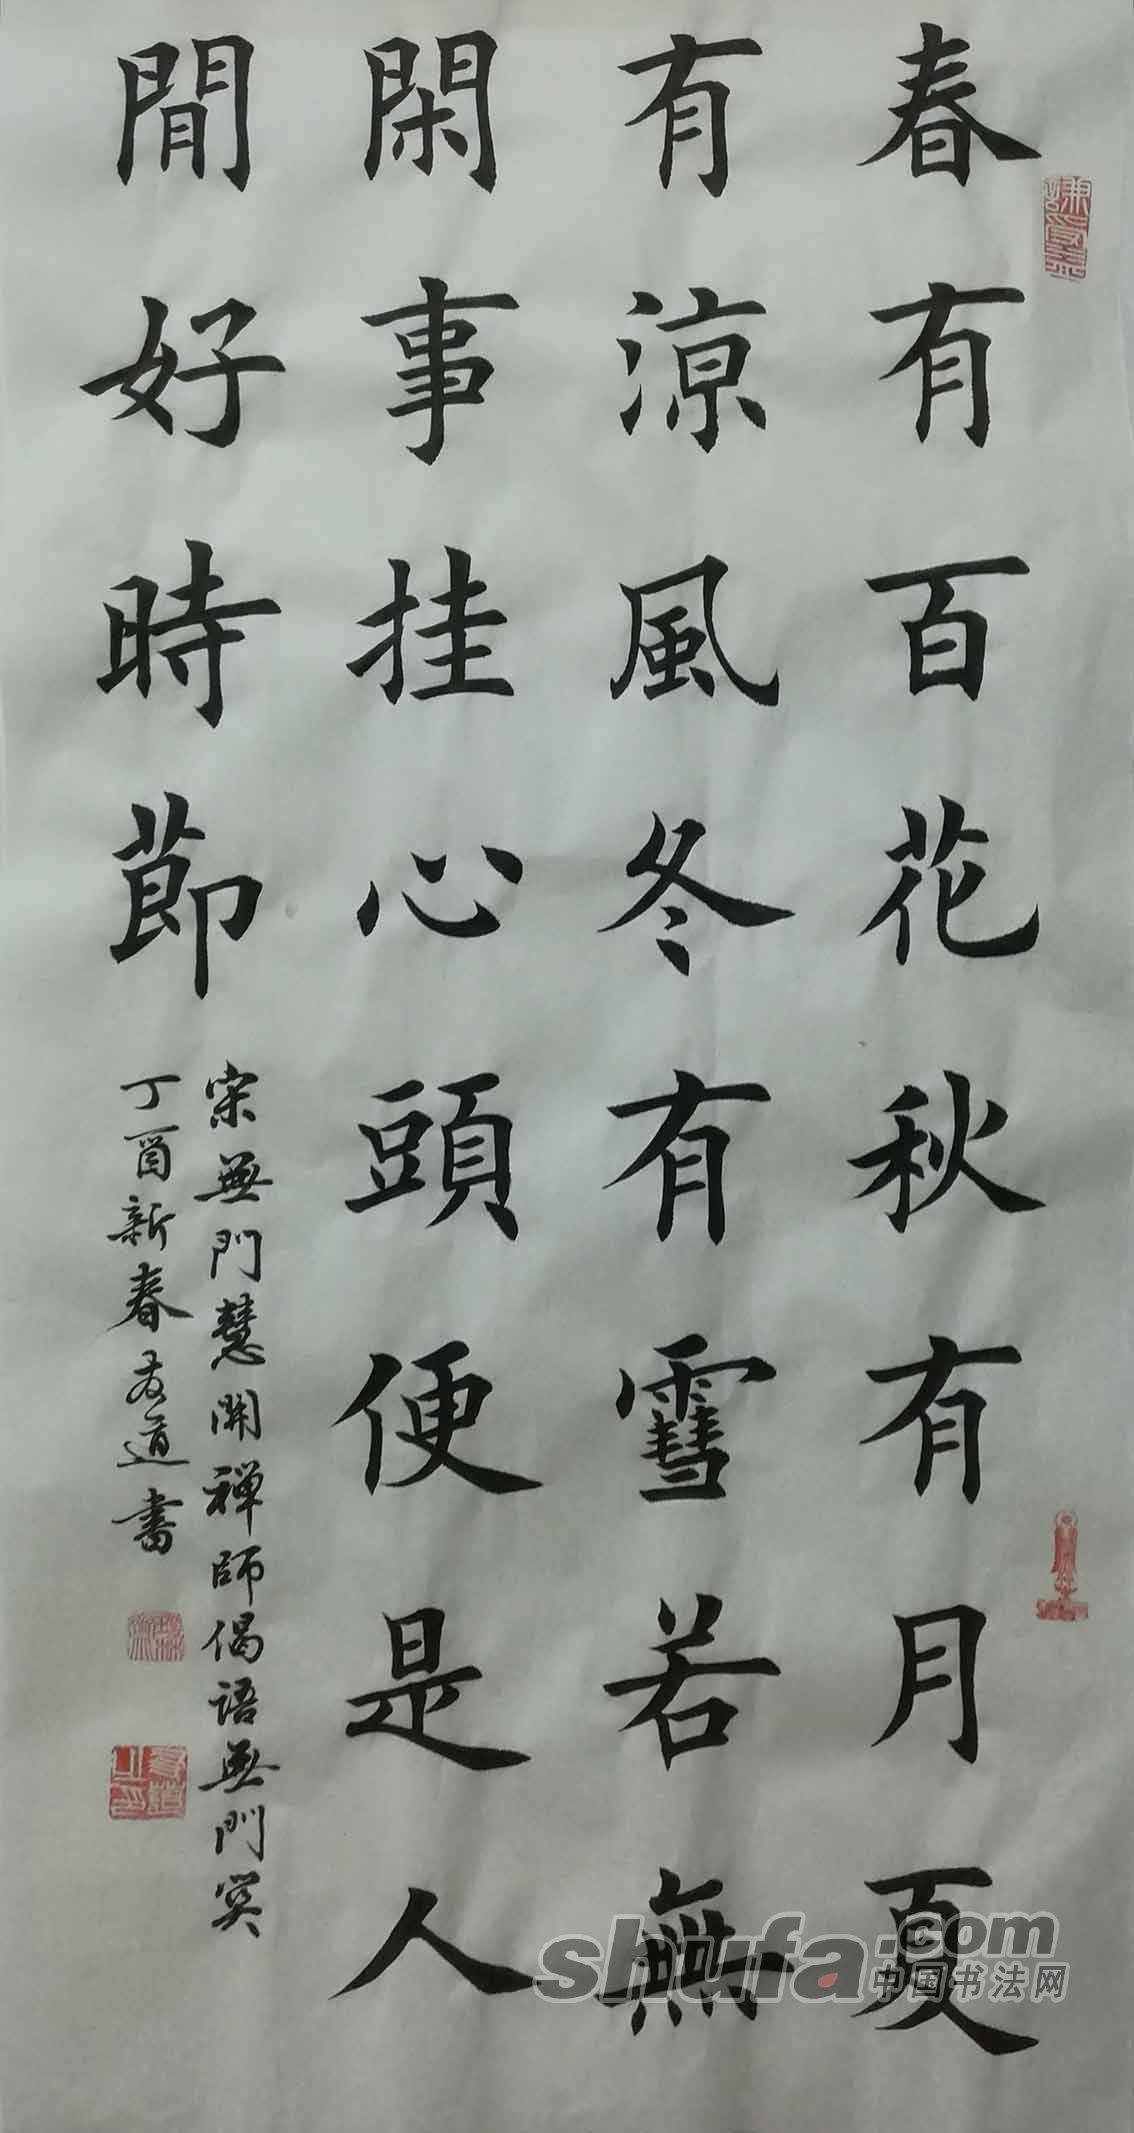 春有百花秋有月夏
有涼風冬有雪若無
閑事挂心頭便是人
間好時節
宋無門慧開禅師偈語無門
丁酉新春友道書
shufa.com
中国书法网